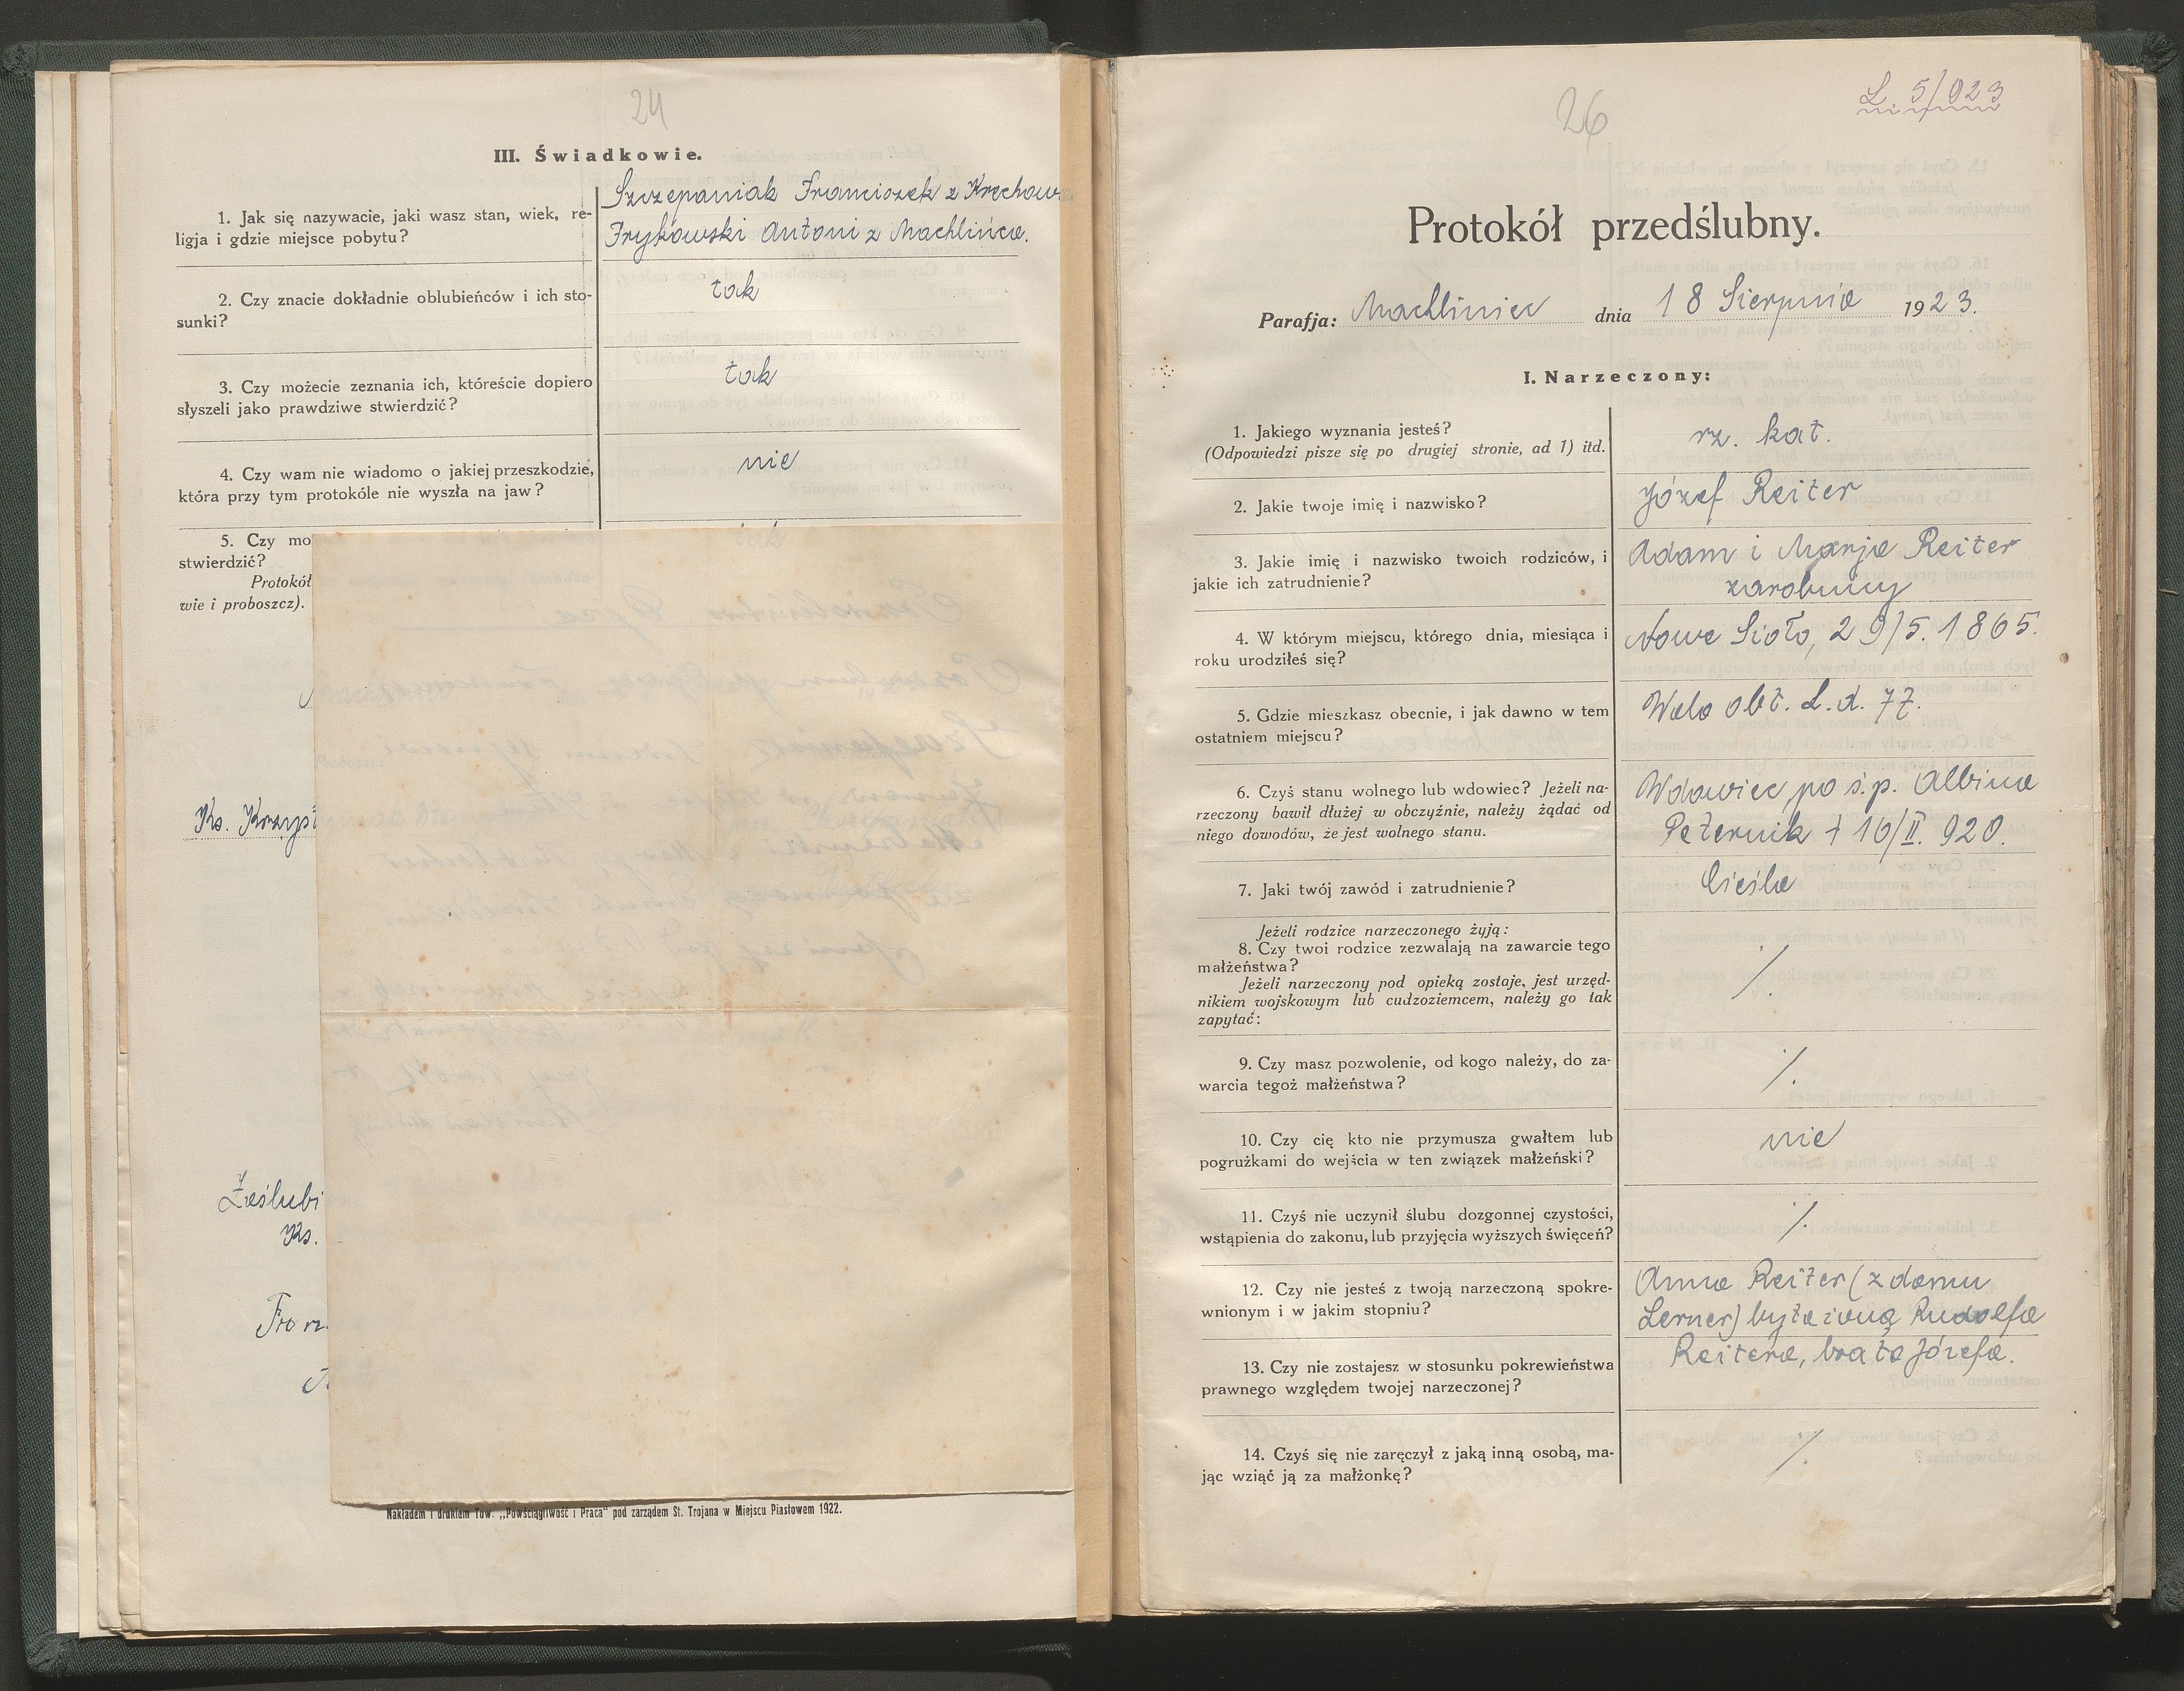 24
III. Świadkowie.
1. Jak się nazywacie, jaki wasz stan, wiek, re-
ligja i gdzie miejsce pobytu?
Szczepaniak Franciszek z
Antoni z Machlińca.
2. Czy znacie dokładnie oblubieńców i ich sto-
sunki?
tak
3. Czy możecie zeznania ich, któreście dopiero
słyszeli jako prawdziwe stwierdzić?
tak
4. Czy wam nie wiadomo o jakiej przeszkodzie,
która przy tym protokóle nie wyszła na jaw?
nie
5. Czy mo
stwierdzić?
Protokół
wie i proboszcz).
Ks. Krzyś
Zaślubi
Ks.
Nakładem i drukiem Tow. „Powściągliwość i Praca" pod zarządem St. Trojana w Miejscu Piastowem 1922.
26
L. 5/923
Protokół przedślubny.
Parafja: Machliniec dnia 18 Sierpnia 1923.
I. Narzeczony:
1. Jakiego wyznania jesteś?
(Odpowiedzi pisze się po drugiej stronie, ad 1) itd.
rz. kat.
2. Jakie twoje imię i nazwisko?
Józef Reiter
3. Jakie imię i nazwisko twoich rodziców, i
jakie ich zatrudnienie?
Adam i Marja Reiter
zarobnicy
4. W którym miejscu, którego dnia, miesiąca i
roku urodziłeś się?
Nowe Sioło, 29/5. 1865.
5. Gdzie mieszkasz obecnie, i jak dawno w tem
ostatniem miejscu?
Wola obł. L. d. 77.
6. Czyś stanu wolnego lub wdowiec? Jeżeli na-
rzeczony bawił dłużej w obczyźnie, należy żądać od
niego dowodów, że jest wolnego stanu.
Wdowiec po ś.p. Albina
Peternik † 16/II. 920.
7. Jaki twój zawód i zatrudnienie?
Cieśla
Jeżeli rodzice narzeczonego żyją:
8. Czy twoi rodzice zezwalają na zawarcie tego
małżeństwa?
Jeżeli narzeczony pod opieką zostaje, jest urzęd-
nikiem wojskowym lub cudzoziemcem, należy go tak
zapytać:
/.
9. Czy masz pozwolenie, od kogo należy, do za-
warcia tegoż małżeństwa?
/.
10. Czy cię kto nie przymusza gwałtem lub
pogrużkami do wejścia w ten związek małżeński?
nie
11. Czyś nie uczynił ślubu dozgonnej czystości,
wstąpienia do zakonu, lub przyjęcia wyższych święceń?
/.
12. Czy nie jesteś z twoją narzeczoną spokre-
wnionym i w jakim stopniu?
Anna Reiter (z domu
Lerner) była żoną Rudolfa
13. Czy nie zostajesz w stosunku pokrewieństwa
prawnego względem twojej narzeczonej?
Reitera, brata Józefa.
14. Czyś się nie zaręczył z jaką inną osobą, ma-
jąc wziąć ją za małżonkę?
/.